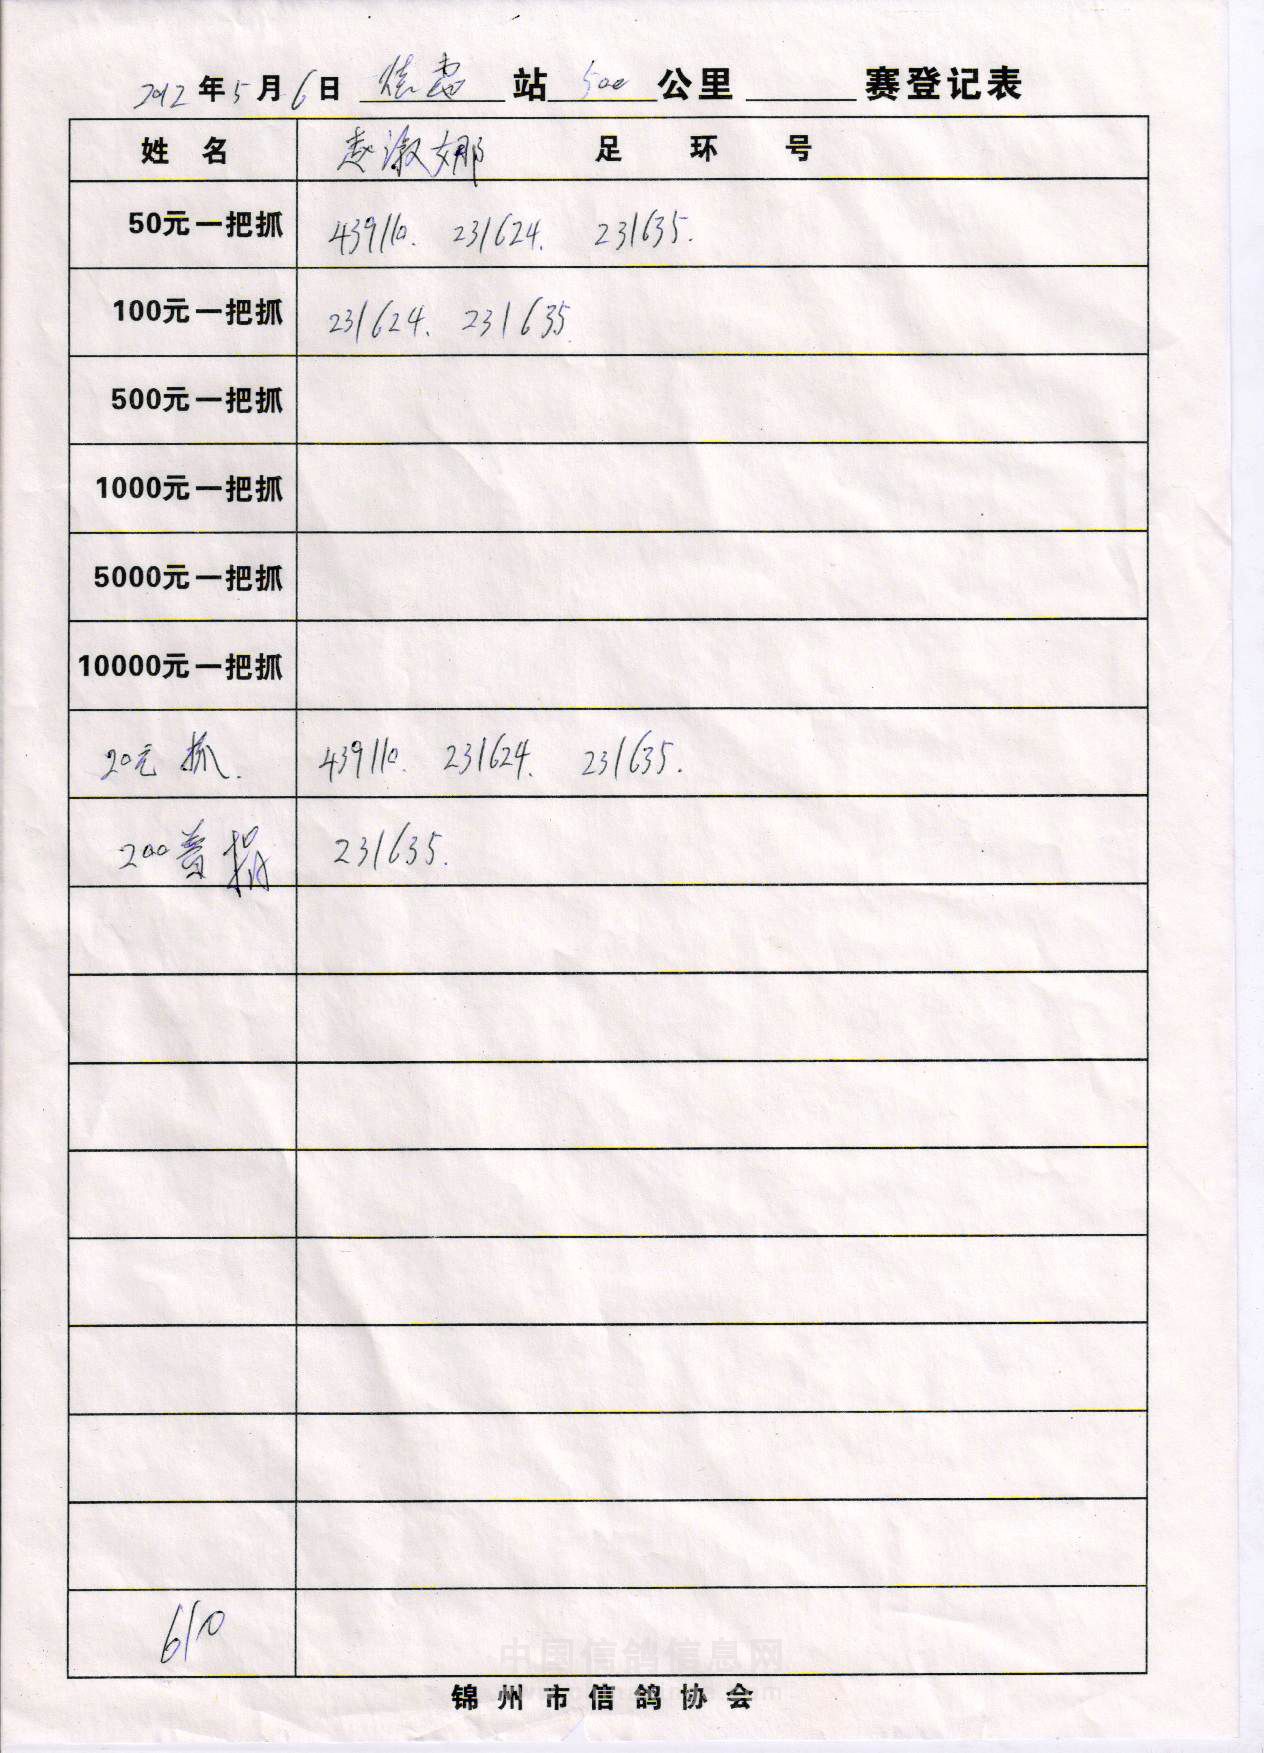 2012年5月6日 站 500 公里 赛登记表
姓 名 赵淑娜 足 环 号
50元一把抓 439110. 231624. 231635.
100元一把抓 231624. 231635
500元一把抓
1000元一把抓
5000元一把抓
10000元一把抓
20元 抓. 439110. 231624. 231635.
200 231635.
610
中国信鸽信息网
锦州市信鸽协会